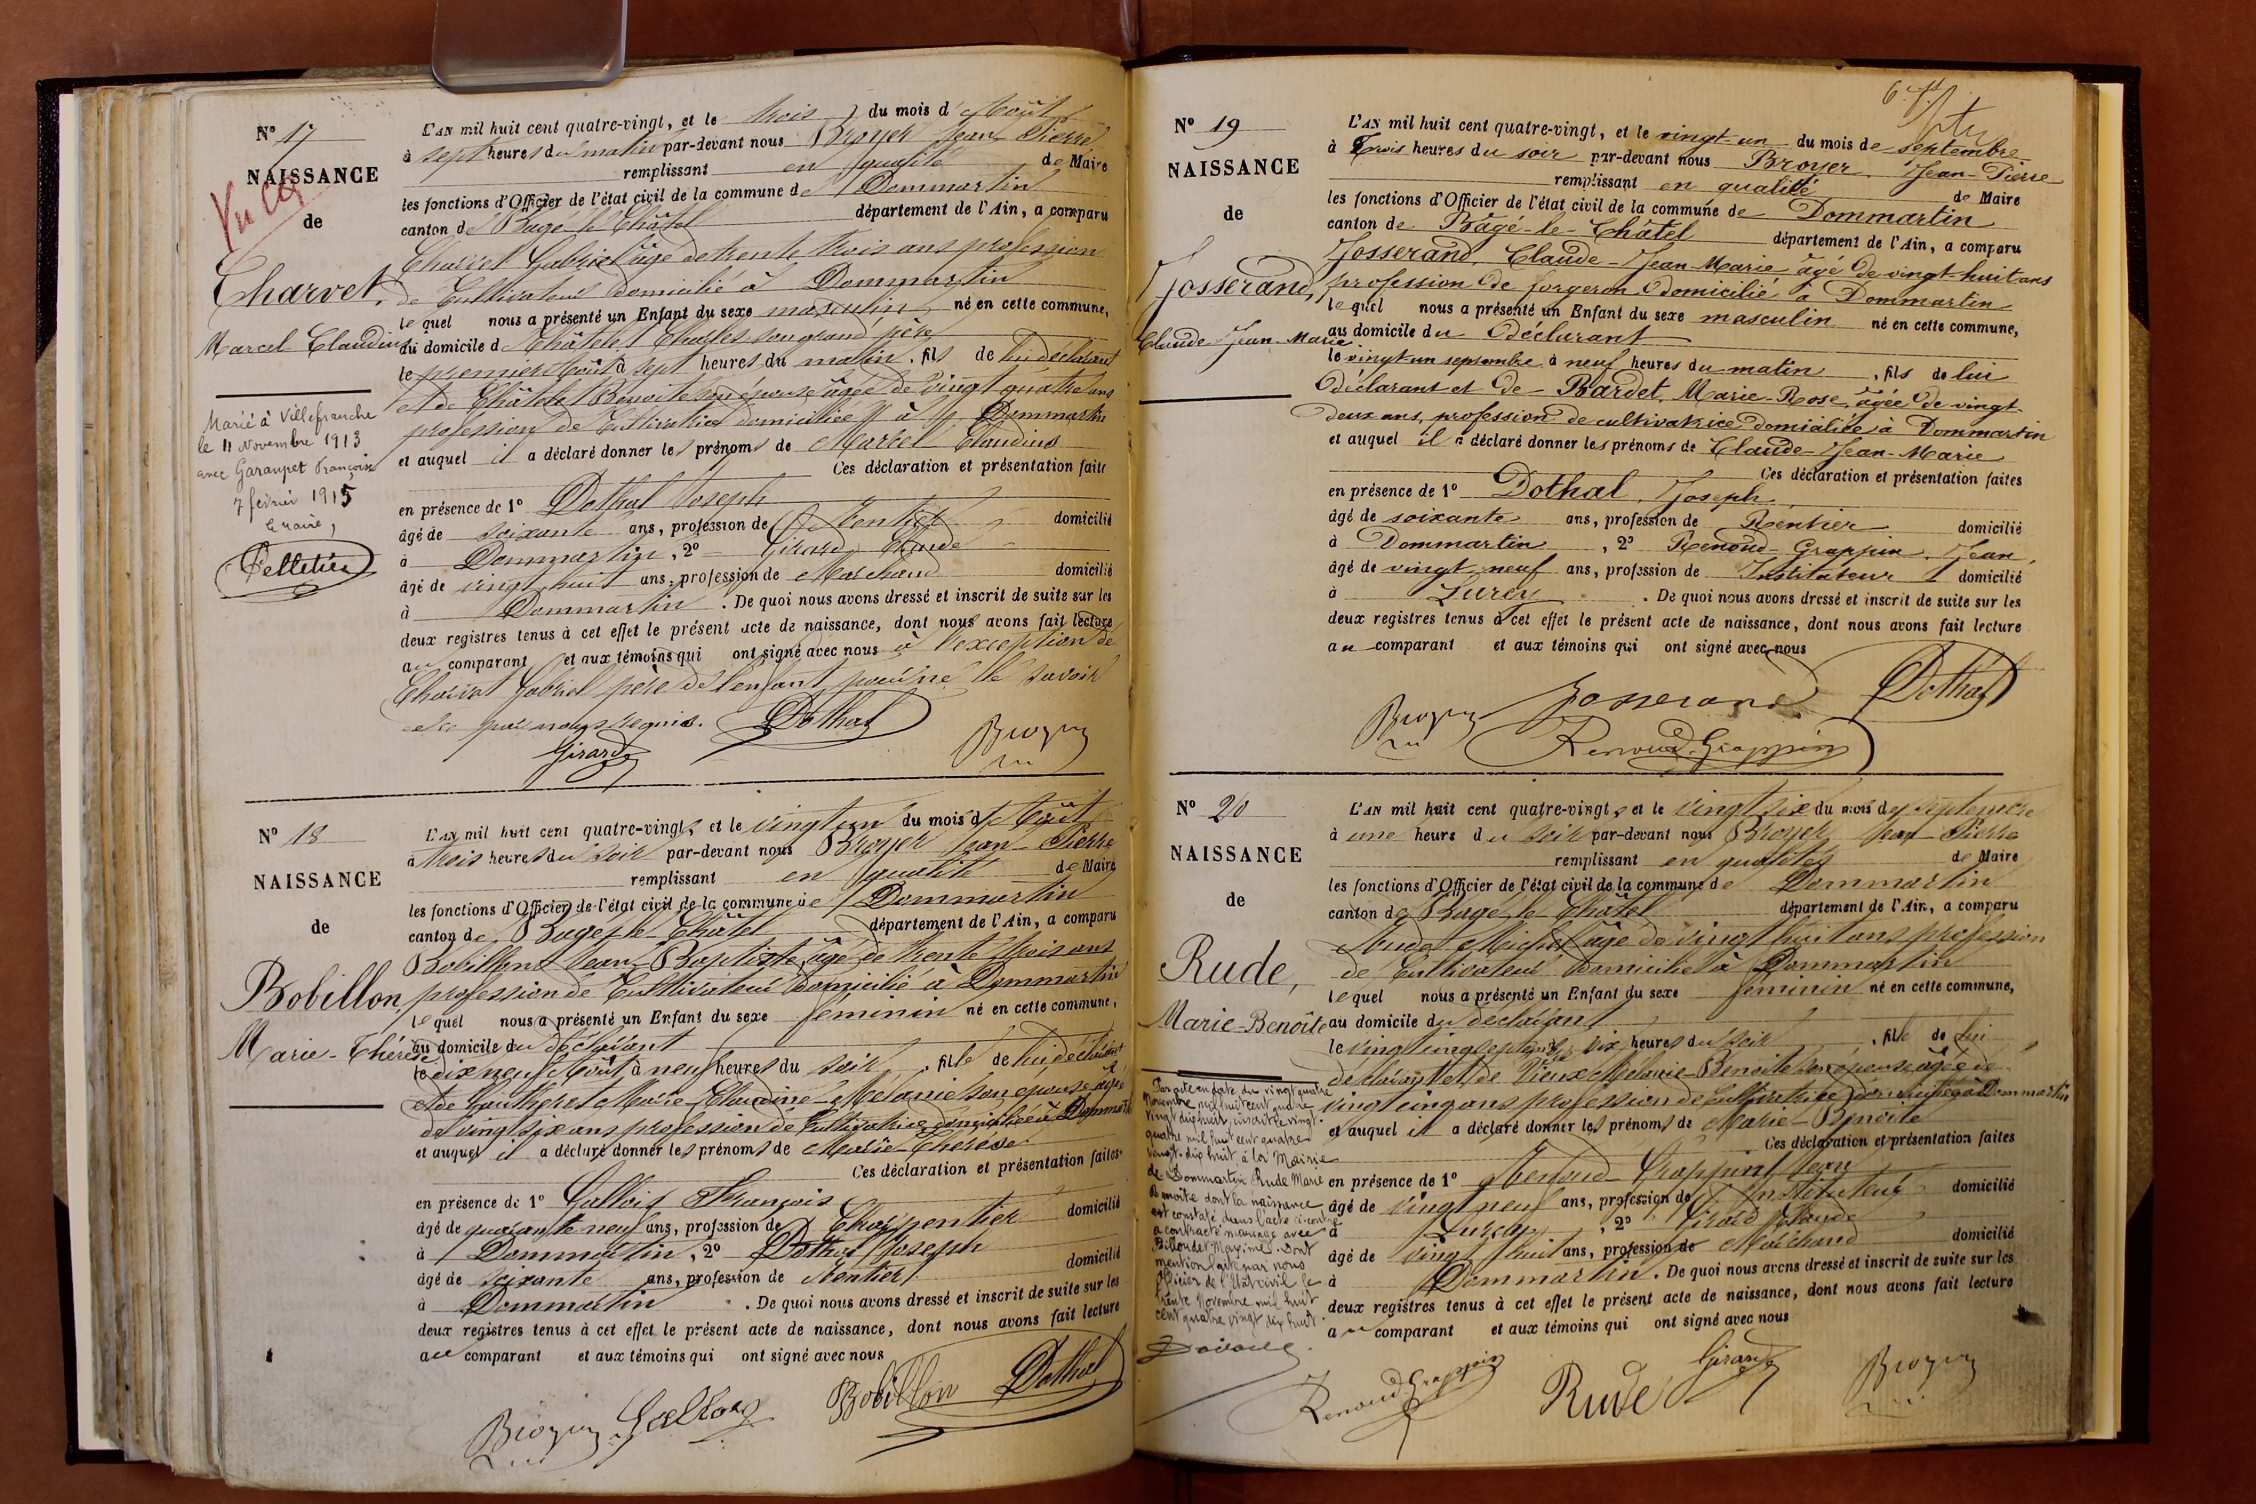 N° 17
NAISSANCE
Vu
de
Charvet,
Marcel Claudius
Marié à Villefranche
le 11 Novembre 1913
avec Garanjset François
7 février 1915
Le Maire,
Pelletier
L'AN mil huit cent quatre-vingt, et le trois du mois d'Août
à sept heures du matin par-devant nous Broyer Jean Pierre
remplissant en qualité de Maire
les fonctions d'Officier de l'état civil de la commune de Dommartin
canton de Bagé le Châtel département de l'Ain, a comparu
Charvet Gabriel âgé de trente trois ans profession
de Cultivateur domicilié à Dommartin
lequel nous a présenté un Enfant du sexe masculin né en cette commune,
au domicile de Châtelet Charles son grand père
le premier Août à sept heures du matin, fils de lui déclarant
et de Châtelet Benoite son épouse âgée de vingt quatre ans
profession de Cultivatrice domiciliée à Dommartin
et auquel il a déclaré donner les prénoms de Marcel Claudius
Ces déclaration et présentation faites
en présence de 1° Dothal Joseph
âgé de soixante ans, profession de Rentier domicilié
à Dommartin, 2° Girard Claude
âgé de vingt huit ans, profession de Marchand domicilié
à Dommartin. De quoi nous avons dressé et inscrit de suite sur les
deux registres tenus à cet effet le présent acte de naissance, dont nous avons fait lecture
au comparant et aux témoins qui ont signé avec nous à l'exception de
Charvet Gabriel père de l'enfant pour ne le savoir
de par nous requis. Dothal
Girard Broyer
N° 18
NAISSANCE
de
Bobillon,
Marie-Thérèse
L'AN mil huit cent quatre-vingt, et le vingt un du mois d'Août
à trois heures du soir par-devant nous Broyer Jean Pierre
remplissant en qualité de Maire
les fonctions d'Officier de l'état civil de la commune de Dommartin
canton de Bagé le Châtel département de l'Ain, a comparu
Bobillon Jean Baptiste âgé de trente trois ans
profession de Cultivateur domicilié à Dommartin
lequel nous a présenté un Enfant du sexe féminin né en cette commune,
au domicile du déclarant
le dix neuf Août à neuf heures du soir, fille de lui déclarant
et de Gautheret Marie-Claudine-Mélanie son épouse âgée
de vingt six ans profession de Cultivatrice domiciliée à Dommartin
et auquel il a déclaré donner les prénoms de Marie-Thérèse
Ces déclaration et présentation faites
en présence de 1° Gallois François
âgé de quarante neuf ans, profession de Charpentier domicilié
à Dommartin, 2° Dothal Joseph
âgé de soixante ans, profession de Rentier domicilié
à Dommartin. De quoi nous avons dressé et inscrit de suite sur les
deux registres tenus à cet effet le présent acte de naissance, dont nous avons fait lecture
au comparant et aux témoins qui ont signé avec nous
Broyer Gallois Bobillon Dothal
N° 19
NAISSANCE
de
Josserand,
Claude-Jean-Marie
L'AN mil huit cent quatre-vingt, et le vingt-un du mois de septembre
à Trois heures du soir par-devant nous Broyer Jean-Pierre
remplissant en qualité de Maire
les fonctions d'Officier de l'état civil de la commune de Dommartin
canton de Bâgé-le-Châtel département de l'Ain, a comparu
Josserand Claude-Jean-Marie âgé de vingt-huit ans
profession de forgeron domicilié à Dommartin
lequel nous a présenté un Enfant du sexe masculin né en cette commune,
au domicile du déclarant
le vingt-un septembre à neuf heures du matin, fils de lui
déclarant et de Bardet, Marie-Rose, âgée de vingt-
deux ans, profession de cultivatrice domiciliée à Dommartin
et auquel il a déclaré donner les prénoms de Claude-Jean-Marie
Ces déclaration et présentation faites
en présence de 1° Dothal, Joseph,
âgé de soixante ans, profession de Rentier domicilié
à Dommartin, 2° Renoud-Grappin, Jean,
âgé de vingt neuf ans, profession de Instituteur domicilié
à Lurcy. De quoi nous avons dressé et inscrit de suite sur les
deux registres tenus à cet effet le présent acte de naissance, dont nous avons fait lecture
au comparant et aux témoins qui ont signé avec nous
Broyer Josserand Dothal
Renoud-Grappin
N° 20
NAISSANCE
de
Rude,
Marie-Benoîte
Par acte en date du vingt quatre
Novembre mil huit cent quatre
vingt dix huit, inscrit le vingt-
quatre mil huit cent quatre
vingt-dix huit à la Mairie
de Dommartin Rude Marie
Benoite dont la naissance
est constatée dans l'acte ci-contre
a contracté mariage avec
Billoudet Maxime. Dont
mention faite par nous
officier de l'Etat civil le
trente Novembre mil huit
cent quatre vingt dix huit.
L'AN mil huit cent quatre-vingt, et le vingt six du mois de septembre
à une heure du soir par-devant nous Broyer Jean Pierre
remplissant en qualité de Maire
les fonctions d'Officier de l'état civil de la commune de Dommartin
canton de Bagé le Châtel département de l'Ain, a comparu
Rude Michel âgé de vingt huit ans profession
de Cultivateur domicilié à Dommartin
lequel nous a présenté un Enfant du sexe féminin né en cette commune,
au domicile du déclarant
le vingt cinq septembre à dix heures du soir, fille de lui
déclarant et de Vieux Mélanie-Benoite son épouse âgée de
vingt cinq ans profession de Cultivatrice domiciliée à Dommartin
et auquel il a déclaré donner les prénoms de Marie-Benoite
Ces déclaration et présentation faites
en présence de 1° Renoud-Grappin Jean
âgé de vingt neuf ans, profession de Instituteur domicilié
à Lurcy, 2° Girard Claude
âgé de vingt huit ans, profession de Marchand domicilié
à Dommartin. De quoi nous avons dressé et inscrit de suite sur les
deux registres tenus à cet effet le présent acte de naissance, dont nous avons fait lecture
au comparant et aux témoins qui ont signé avec nous
Renoud-Grappin Rude Girard Broyer